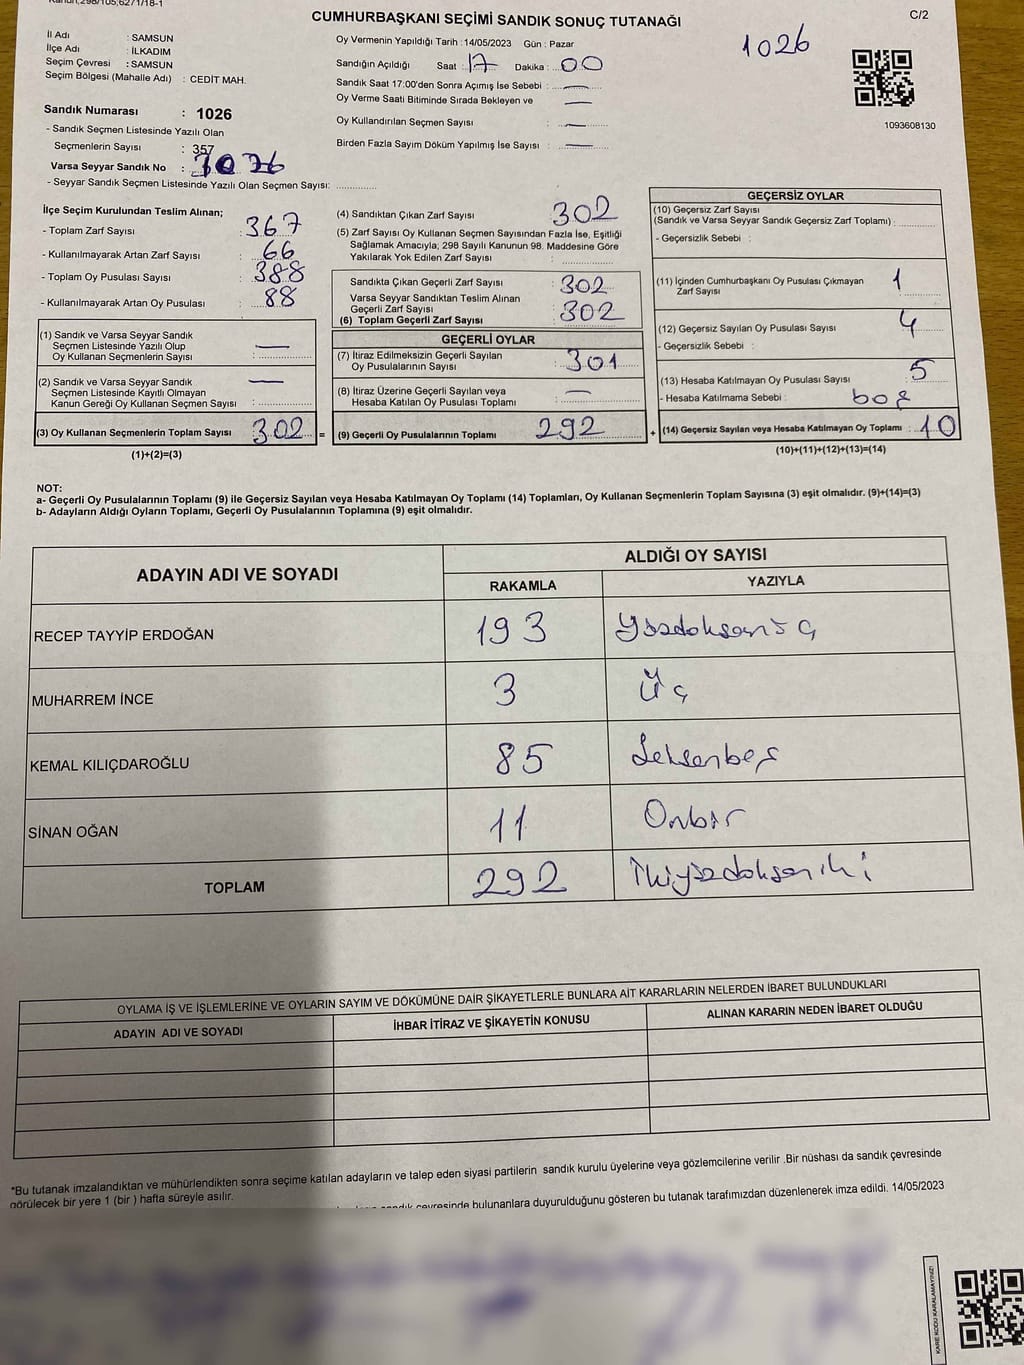 CUMHURBAŞKANI SEÇİMİ SANDIK SONUÇ TUTANAĞI
C/2
İl Adı : SAMSUN
İlçe Adı : İLKADIM
Seçim Çevresi : SAMSUN
Seçim Bölgesi (Mahalle Adı) : CEDİT MAH.
Oy Vermenin Yapıldığı Tarih : 14/05/2023 Gün : Pazar
1026
Sandığın Açıldığı Saat : 17 Dakika : 00
Sandık Saat 17:00'den Sonra Açımış İse Sebebi : —
Oy Verme Saati Bitiminde Sırada Bekleyen ve —
Oy Kullandırılan Seçmen Sayısı : —
Birden Fazla Sayım Döküm Yapılmış İse Sayısı : —
1093608130
Sandık Numarası : 1026
- Sandık Seçmen Listesinde Yazılı Olan
Seçmenlerin Sayısı : 357
Varsa Seyyar Sandık No :
- Seyyar Sandık Seçmen Listesinde Yazılı Olan Seçmen Sayısı:
İlçe Seçim Kurulundan Teslim Alınan;
- Toplam Zarf Sayısı : 367
- Kullanılmayarak Artan Zarf Sayısı : 66
- Toplam Oy Pusulası Sayısı : 388
- Kullanılmayarak Artan Oy Pusulası : 88
(1) Sandık ve Varsa Seyyar Sandık
Seçmen Listesinde Yazılı Olup
Oy Kullanan Seçmenlerin Sayısı : —
(2) Sandık ve Varsa Seyyar Sandık
Seçmen Listesinde Kayıtlı Olmayan
Kanun Gereği Oy Kullanan Seçmen Sayısı : —
(3) Oy Kullanan Seçmenlerin Toplam Sayısı 302 =
(1)+(2)=(3)
(4) Sandıktan Çıkan Zarf Sayısı : 302
(5) Zarf Sayısı Oy Kullanan Seçmen Sayısından Fazla İse, Eşitliği
Sağlamak Amacıyla; 298 Sayılı Kanunun 98. Maddesine Göre
Yakılarak Yok Edilen Zarf Sayısı :
Sandıkta Çıkan Geçerli Zarf Sayısı : 302
Varsa Seyyar Sandıktan Teslim Alınan
Geçerli Zarf Sayısı
(6) Toplam Geçerli Zarf Sayısı : 302
GEÇERLİ OYLAR
(7) İtiraz Edilmeksizin Geçerli Sayılan
Oy Pusulalarının Sayısı : 301
(8) İtiraz Üzerine Geçerli Sayılan veya
Hesaba Katılan Oy Pusulası Toplamı : —
(9) Geçerli Oy Pusulalarının Toplamı 292 +
GEÇERSİZ OYLAR
(10) Geçersiz Zarf Sayısı
(Sandık ve Varsa Seyyar Sandık Geçersiz Zarf Toplamı) :
- Geçersizlik Sebebi :
(11) İçinden Cumhurbaşkanı Oy Pusulası Çıkmayan
Zarf Sayısı 1
(12) Geçersiz Sayılan Oy Pusulası Sayısı 4
- Geçersizlik Sebebi :
(13) Hesaba Katılmayan Oy Pusulası Sayısı 5
- Hesaba Katılmama Sebebi : boş
(14) Geçersiz Sayılan veya Hesaba Katılmayan Oy Toplamı : 10
(10)+(11)+(12)+(13)=(14)
NOT:
a- Geçerli Oy Pusulalarının Toplamı (9) ile Geçersiz Sayılan veya Hesaba Katılmayan Oy Toplamı (14) Toplamları, Oy Kullanan Seçmenlerin Toplam Sayısına (3) eşit olmalıdır. (9)+(14)=(3)
b- Adayların Aldığı Oyların Toplamı, Geçerli Oy Pusulalarının Toplamına (9) eşit olmalıdır.
ADAYIN ADI VE SOYADI
ALDIĞI OY SAYISI
RAKAMLA YAZIYLA
RECEP TAYYİP ERDOĞAN 193 Yüzdoksanüç
MUHARREM İNCE 3 Üç
KEMAL KILIÇDAROĞLU 85 Seksenbeş
SİNAN OĞAN 11 Onbir
TOPLAM 292 İkiyüzdoksaniki
OYLAMA İŞ VE İŞLEMLERİNE VE OYLARIN SAYIM VE DÖKÜMÜNE DAİR ŞİKAYETLERLE BUNLARA AİT KARARLARIN NELERDEN İBARET BULUNDUKLARI
ADAYIN ADI VE SOYADI İHBAR İTİRAZ VE ŞİKAYETİN KONUSU ALINAN KARARIN NEDEN İBARET OLDUĞU
*Bu tutanak imzalandıktan ve mühürlendikten sonra seçime katılan adayların ve talep eden siyasi partilerin sandık kurulu üyelerine veya gözlemcilerine verilir .Bir nüshası da sandık çevresinde
görülecek bir yere 1 (bir ) hafta süreyle asılır.
sandık çevresinde bulunanlara duyurulduğunu gösteren bu tutanak tarafımızdan düzenlenerek imza edildi. 14/05/2023
KARE KODU KARALAMAYINIZ!